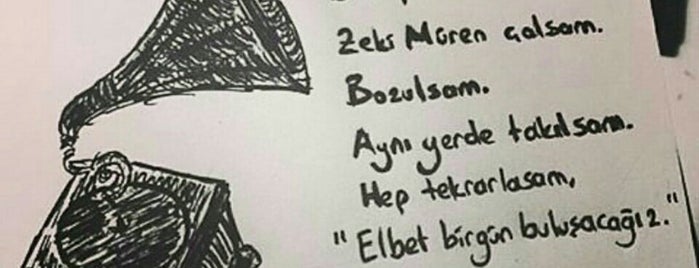 Zeki Müren çalsam.
Bozulsam.
Aynı yerde takılsam.
Hep tekrarlasam,
"Elbet birgün buluşacağız."